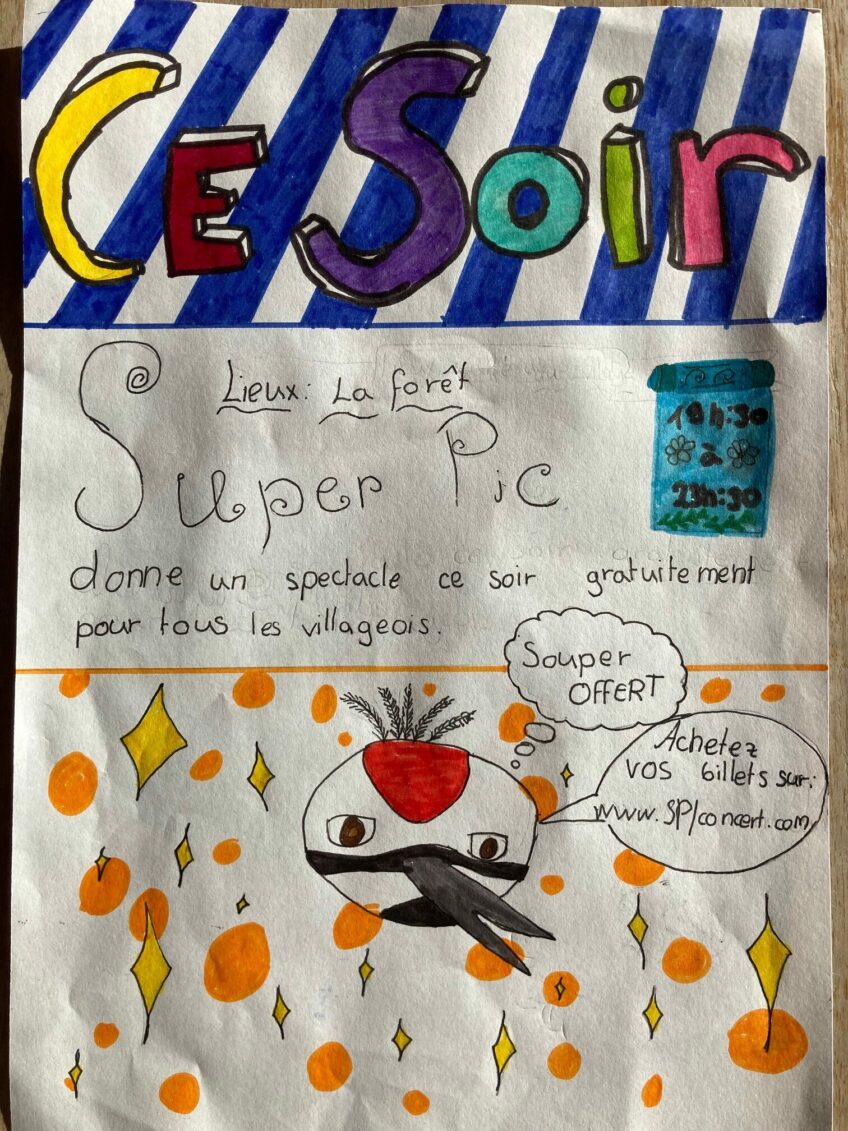 CE Soir
Lieux: La forêt
19h:30
à
23h:30
Super Pic
donne un spectacle ce soir gratuitement
pour tous les villageois.
Souper
OFFERT
Achetez
vos billets sur:
www.SP/concert.com